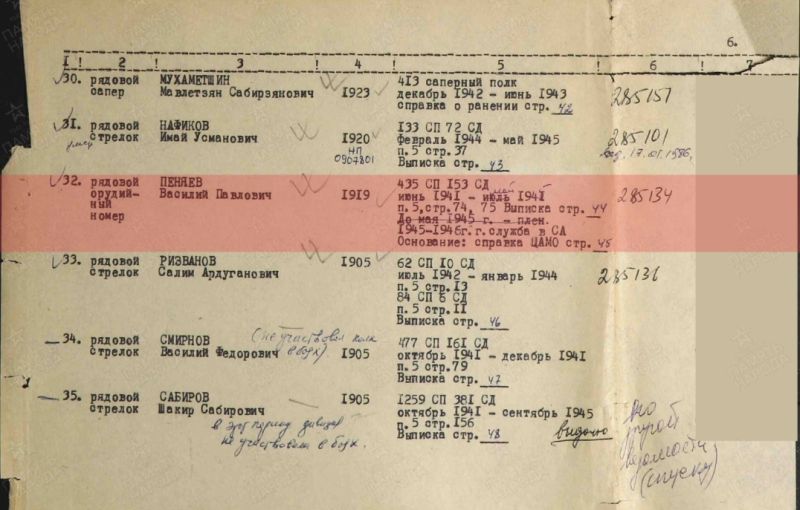 6.
1 ! 2 ! 3 ! 4 ! 5 ! 6 ! 7
30. рядовой МУХАМЕТШИН 413 саперный полк
сапер Мавлетзян Сабирзянович 1923 декабрь 1942 - июнь 1943 285151
справка о ранении стр. 42
31. рядовой НАФИКОВ 133 СП 72 СД
стрелок Имай Усманович 1920 февраль 1944 - май 1945 285101
НП п.5 стр.37 17.01.1986г.
0907801 Выписка стр. 43
32. рядовой ПЕНЯЕВ 435 СП 153 СД
орудий- Василий Павлович 1919 июнь 1941 - июль май 1941 285134
ный п.5,стр.74, 75 Выписка стр. 44
номер До мая 1945 г. - плен.
1945-1946г.г.служба в СА
Основание: справка ЦАМО стр. 45
33. рядовой РИЗВАНОВ 1905 62 СП 10 СД
стрелок Салим Ардуганович июль 1942 - январь 1944 285136
п.5 стр.13
84 СП 6 СД
п.5 стр.11
Выписка стр. 46
34. рядовой СМИРНОВ (не участвовал полк 477 СП 161 СД
стрелок Василий Федорович в боях) 1905 октябрь 1941 - декабрь 1941
п.5 стр.79
Выписка стр. 47
35. рядовой САБИРОВ 1905 1259 СП 381 СД
стрелок Шакир Сабирович октябрь 1941 - сентябрь 1945
в этот период дивизия п.5 стр.156
не участвовала в боях. Выписка стр. 48 выдано
по
другой
ведомости
(списку)